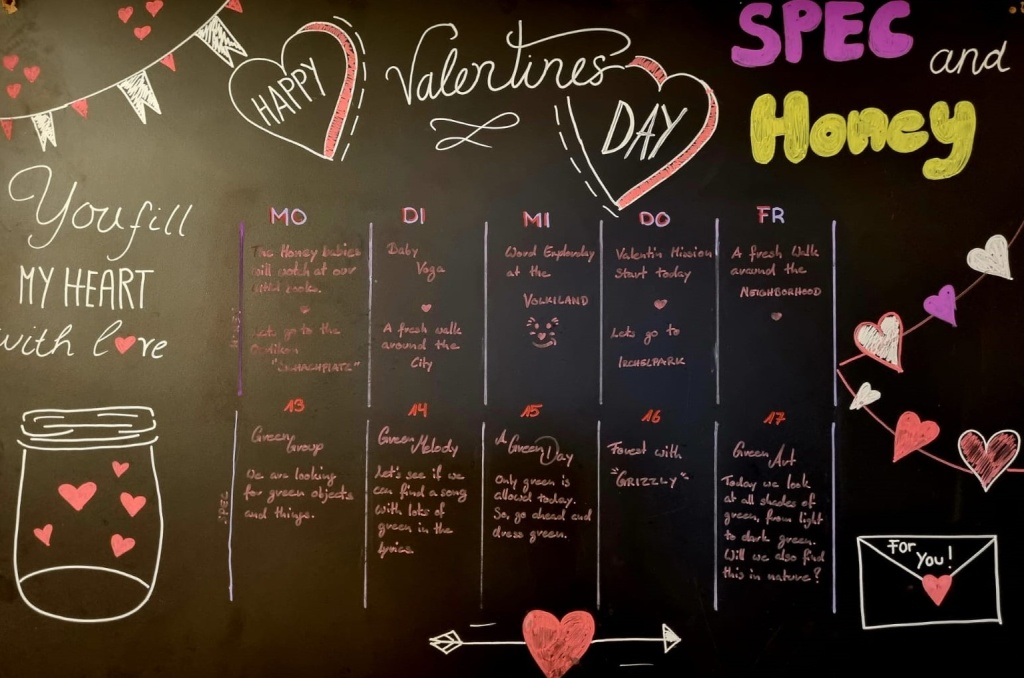 HAPPY
Valentines
DAY
SPEC and
Honey
You fill
MY HEART
with love
MO
The Honey babies
will watch at our
books.
Let's go to the
DI
Baby
Yoga
A fresh walk
around the
City
MI
Word Exploraday
at the
VOLKILAND
DO
Valentin Mission
Start today
Lets go to
IRCHELPARK
FR
A fresh Walk
around the
NEIGHBORHOOD
SPEC
13
Green
Group
We are looking
for green objects
and things.
14
Green Melody
Let's see if we
can find a song
with lots of
green in the
lyrics.
15
A Green Day
Only green is
allowed today.
So, go ahead and
dress green.
16
Forest with
"GRIZZLY"
17
Green Art
Today we look
at all shades of
green, from light
to dark green.
Will we also find
this in nature?
For you!